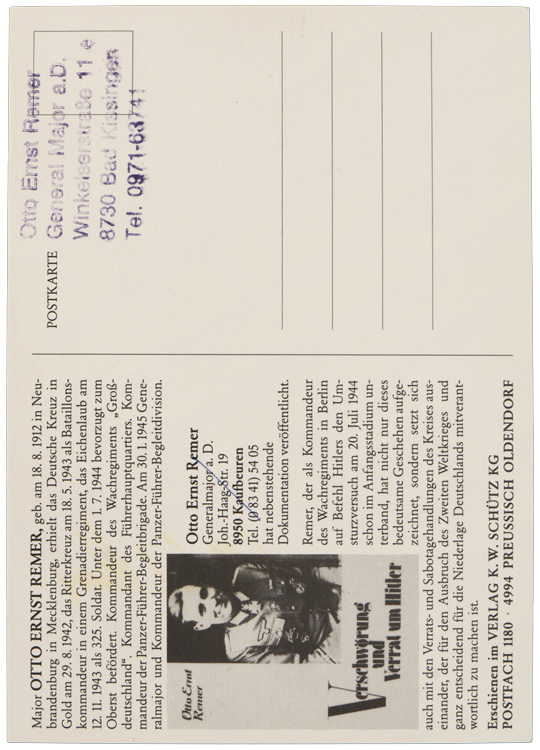 Major OTTO ERNST REMER, geb. am 18. 8. 1912 in Neu-
brandenburg in Mecklenburg, erhielt das Deutsche Kreuz in
Gold am 29. 8. 1942, das Ritterkreuz am 18. 5. 1943 als Bataillons-
kommandeur in einem Grenadierregiment, das Eichenlaub am
12. 11. 1943 als 325. Soldat. Unter dem 1. 7. 1944 bevorzugt zum
Oberst befördert. Kommandeur des Wachregiments „Groß-
deutschland“. Kommandant des Führerhauptquartiers. Kom-
mandeur der Panzer-Führer-Begleitbrigade. Am 30. 1. 1945 Gene-
ralmajor und Kommandeur der Panzer-Führer-Begleitdivision.
Otto Ernst
Remer
Verschwörung
und
Verrat um Hitler
Otto Ernst Remer
Generalmajor a. D.
Joh.-Haag-Str. 19
8950 Kaufbeuren
Tel. (0 83 41) 54 05
hat nebenstehende
Dokumentation veröffentlicht.
Remer, der als Kommandeur
des Wachregiments in Berlin
auf Befehl Hitlers den Um-
sturzversuch am 20. Juli 1944
schon im Anfangsstadium un-
terband, hat nicht nur dieses
bedeutsame Geschehen aufge-
zeichnet, sondern setzt sich
auch mit den Verrats- und Sabotagehandlungen des Kreises aus-
einander, der für den Ausbruch des Zweiten Weltkrieges und
ganz entscheidend für die Niederlage Deutschlands mitverant-
wortlich zu machen ist.
Erschienen im VERLAG K. W. SCHÜTZ KG
POSTFACH 1180 · 4994 PREUSSISCH OLDENDORF
POSTKARTE
Otto Ernst Remer
General Major a.D.
Winkelserstraße 11 e
8730 Bad Kissingen
Tel. 0971-63741